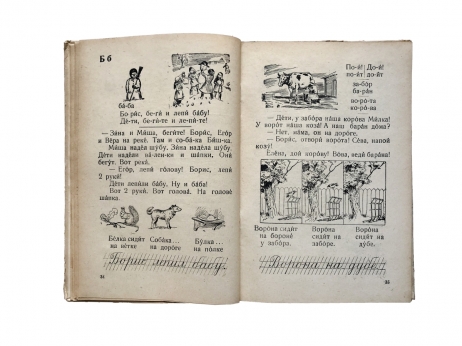 Б б
ба́-ба
Бо-ри́с, бе-ги́ и лепи́ ба́бу!
Де́-ти, бе-ги́-те и ле-пи́-те!
— Зи́на и Ма́ша, беги́те! Бори́с, Его́р
и Ве́ра на реке́. Там и со-ба́-ка Би́ш-ка.
Ма́ша наде́ла шу́бу. Зи́на наде́ла шу́бу.
Де́ти наде́ли ва́-лен-ки и ша́пки. Они́
бегу́т. Вот они́ на реке́.
— Его́р, лепи́ го́лову! Бори́с, лепи́
2 руки́!
Де́ти лепи́ли ба́бу. Ну и ба́ба!
Вот 2 руки́. Вот голова́. На голове́
ша́пка.
Бе́лка сиди́т
на ве́тке
Соба́ка...
на доро́ге
Бу́лка...
на по́лке
Борис лепил бабу.
34
По-й! До-й!
по-и́т до-и́т
за-бо́р
ба-ра́н
во-ро́-та
ко-ро́-ва
— Де́ти, у забо́ра на́ша коро́ва Ми́лка!
У воро́т на́ша коза́! А наш бара́н до́ма?
— Нет, ма́ма, он на доро́ге.
— Бори́с, отвори́ воро́та! Се́ва, напои́
козу́!
Еле́на, дой коро́ву! Во́ва, веди́ бара́на!
Воро́на сиди́т
на
у забо́ра.
Воро́на
сиди́т на
забо́ре.
Воро́на
сиди́т на
ду́бе.
Ворона на дубе.
35